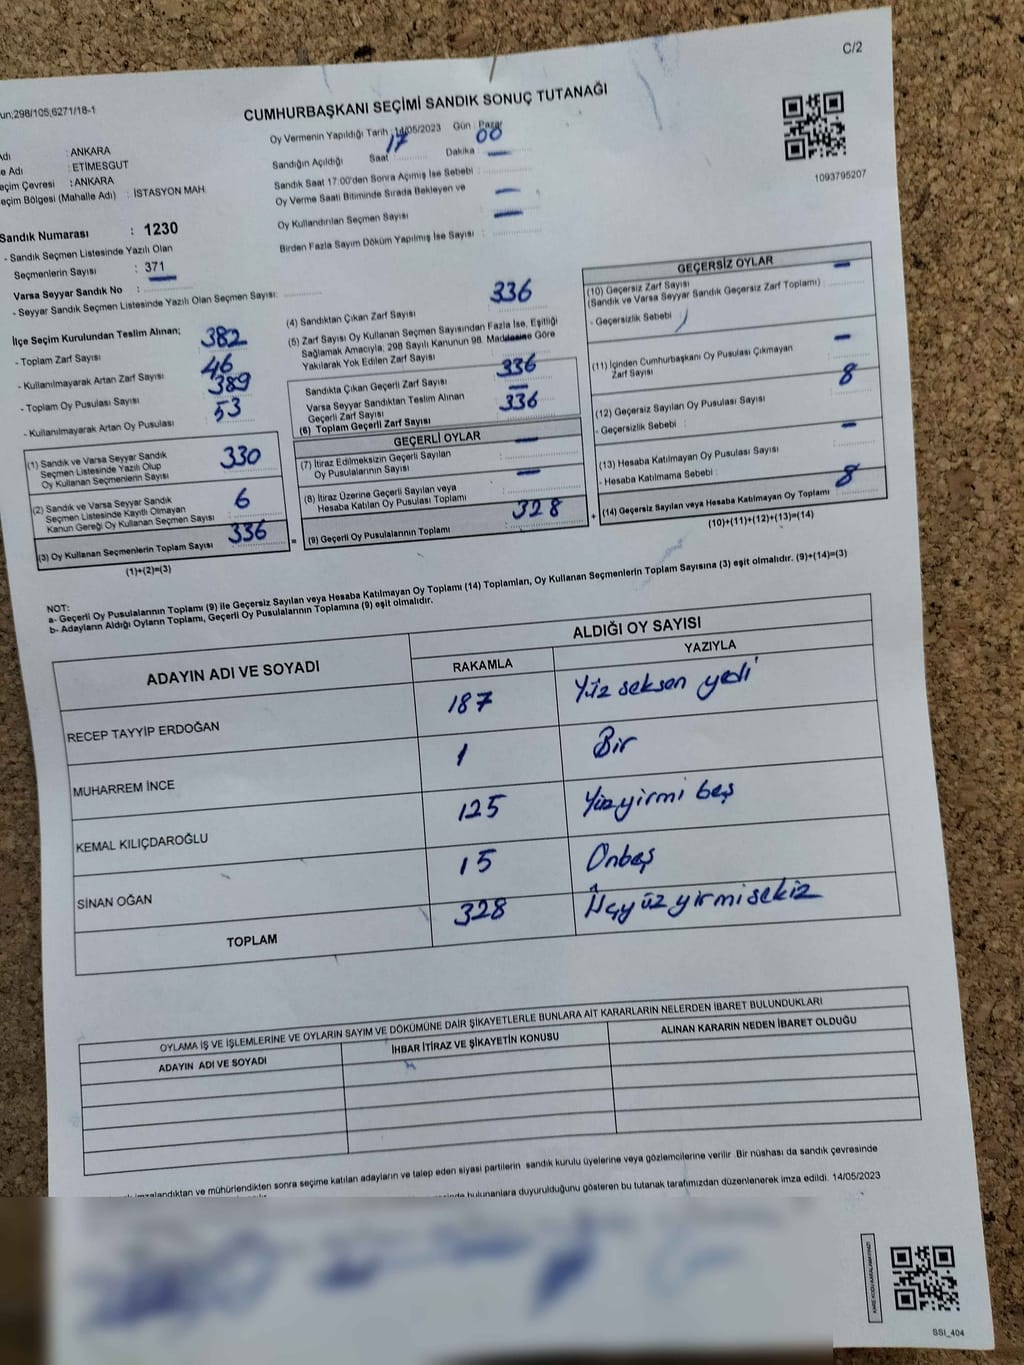 C/2
un;298/105;6271/18-1
CUMHURBAŞKANI SEÇİMİ SANDIK SONUÇ TUTANAĞI
Oy Vermenin Yapıldığı Tarih : 14/05/2023 Gün : Pazar
Sandığın Açıldığı Saat 17 Dakika : 00
Sandık Saat 17:00'den Sonra Açılmış İse Sebebi :
Oy Verme Saati Bitiminde Sırada Bekleyen ve
Oy Kullandırılan Seçmen Sayısı : —
Birden Fazla Sayım Döküm Yapılmış İse Sayısı : —
1093795207
Adı : ANKARA
e Adı : ETİMESGUT
eçim Çevresi : ANKARA
eçim Bölgesi (Mahalle Adı) : İSTASYON MAH.
Sandık Numarası : 1230
- Sandık Seçmen Listesinde Yazılı Olan
Seçmenlerin Sayısı : 371
Varsa Seyyar Sandık No : —
- Seyyar Sandık Seçmen Listesinde Yazılı Olan Seçmen Sayısı:
İlçe Seçim Kurulundan Teslim Alınan;
- Toplam Zarf Sayısı 382
- Kullanılmayarak Artan Zarf Sayısı 46
- Toplam Oy Pusulası Sayısı 389
- Kullanılmayarak Artan Oy Pusulası 53
(1) Sandık ve Varsa Seyyar Sandık
Seçmen Listesinde Yazılı Olup
Oy Kullanan Seçmenlerin Sayısı 330
(2) Sandık ve Varsa Seyyar Sandık
Seçmen Listesinde Kayıtlı Olmayan
Kanun Gereği Oy Kullanan Seçmen Sayısı 6
(3) Oy Kullanan Seçmenlerin Toplam Sayısı 336
(1)+(2)=(3)
(4) Sandıktan Çıkan Zarf Sayısı 336
(5) Zarf Sayısı Oy Kullanan Seçmen Sayısından Fazla İse, Eşitliği
Sağlamak Amacıyla; 298 Sayılı Kanunun 98. Maddesine Göre
Yakılarak Yok Edilen Zarf Sayısı —
Sandıkta Çıkan Geçerli Zarf Sayısı 336
Varsa Seyyar Sandıktan Teslim Alınan
Geçerli Zarf Sayısı —
(6) Toplam Geçerli Zarf Sayısı 336
GEÇERLİ OYLAR
(7) İtiraz Edilmeksizin Geçerli Sayılan
Oy Pusulalarının Sayısı —
(8) İtiraz Üzerine Geçerli Sayılan veya
Hesaba Katılan Oy Pusulası Toplamı —
(9) Geçerli Oy Pusulalarının Toplamı 328
GEÇERSİZ OYLAR
(10) Geçersiz Zarf Sayısı
(Sandık ve Varsa Seyyar Sandık Geçersiz Zarf Toplamı) —
- Geçersizlik Sebebi :
(11) İçinden Cumhurbaşkanı Oy Pusulası Çıkmayan
Zarf Sayısı —
(12) Geçersiz Sayılan Oy Pusulası Sayısı 8
- Geçersizlik Sebebi :
(13) Hesaba Katılmayan Oy Pusulası Sayısı —
- Hesaba Katılmama Sebebi :
(14) Geçersiz Sayılan veya Hesaba Katılmayan Oy Toplamı 8
(10)+(11)+(12)+(13)=(14)
NOT:
a- Geçerli Oy Pusulalarının Toplamı (9) ile Geçersiz Sayılan veya Hesaba Katılmayan Oy Toplamı (14) Toplamları, Oy Kullanan Seçmenlerin Toplam Sayısına (3) eşit olmalıdır. (9)+(14)=(3)
b- Adayların Aldığı Oyların Toplamı, Geçerli Oy Pusulalarının Toplamına (9) eşit olmalıdır.
ADAYIN ADI VE SOYADI ALDIĞI OY SAYISI
RAKAMLA YAZIYLA
RECEP TAYYİP ERDOĞAN 187 Yüz seksen yedi
MUHARREM İNCE 1 Bir
KEMAL KILIÇDAROĞLU 125 Yüzyirmi beş
SİNAN OĞAN 15 Onbeş
TOPLAM 328 Üçyüz yirmisekiz
OYLAMA İŞ VE İŞLEMLERİNE VE OYLARIN SAYIM VE DÖKÜMÜNE DAİR ŞİKAYETLERLE BUNLARA AİT KARARLARIN NELERDEN İBARET BULUNDUKLARI
ADAYIN ADI VE SOYADI İHBAR İTİRAZ VE ŞİKAYETİN KONUSU ALINAN KARARIN NEDEN İBARET OLDUĞU
imzalandıktan ve mühürlendikten sonra seçime katılan adayların ve talep eden siyasi partilerin sandık kurulu üyelerine veya gözlemcilerine verilir Bir nüshası da sandık çevresinde
bulunanlara duyurulduğunu gösteren bu tutanak tarafımızdan düzenlenerek imza edildi. 14/05/2023
SSI_404